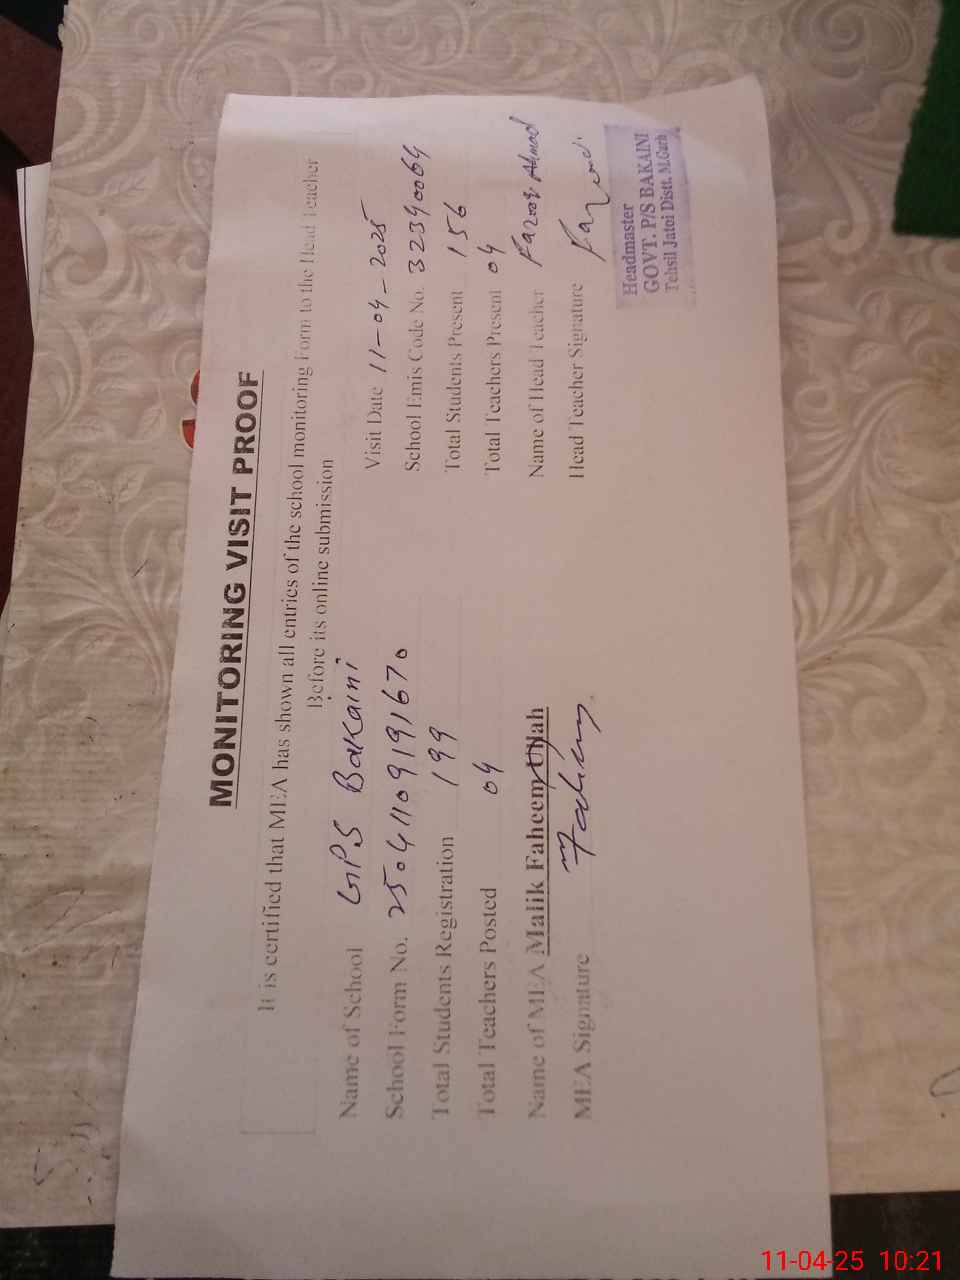 MONITORING VISIT PROOF
It is certified that MEA has shown all entries of the school monitoring Form to the Head Teacher
Before its online submission
Name of School GPS Bakaini
Visit Date 11-04-2025
School Form No. 25041109191670
School Emis Code No. 32390064
Total Students Registration 199
Total Students Present 156
Total Teachers Posted 04
Total Teachers Present 04
Name of MEA Malik Faheem Ullah
Name of Head Teacher Farooq Ahmad
MEA Signature Fahim
Head Teacher Signature Farooq
Headmaster
GOVT. P/S BAKAINI
Tehsil Jatoi Distt. M.Garh
11-04-25 10:21